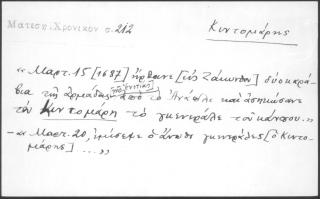 Ματεση. Χρονικον σ. 212
Κιντομάρης
« Μαρτ. 15 [1687] ἦρθανε [εἰς Ζάκυνθον] δύο καρά-
βια τῆς ἁρμάδας ἀπὸ τὸ Ἀνάπλι καὶ ἀσηκώσανε
τὸν Κιντομάρη τὸ γκενεράλε τοῦ κάμπου..»
- « Μαρτ. 20, ἐμίσεψε ὁ ἄνωθε γκενεράλες [ὁ Κιντο-
μάρης] ...»